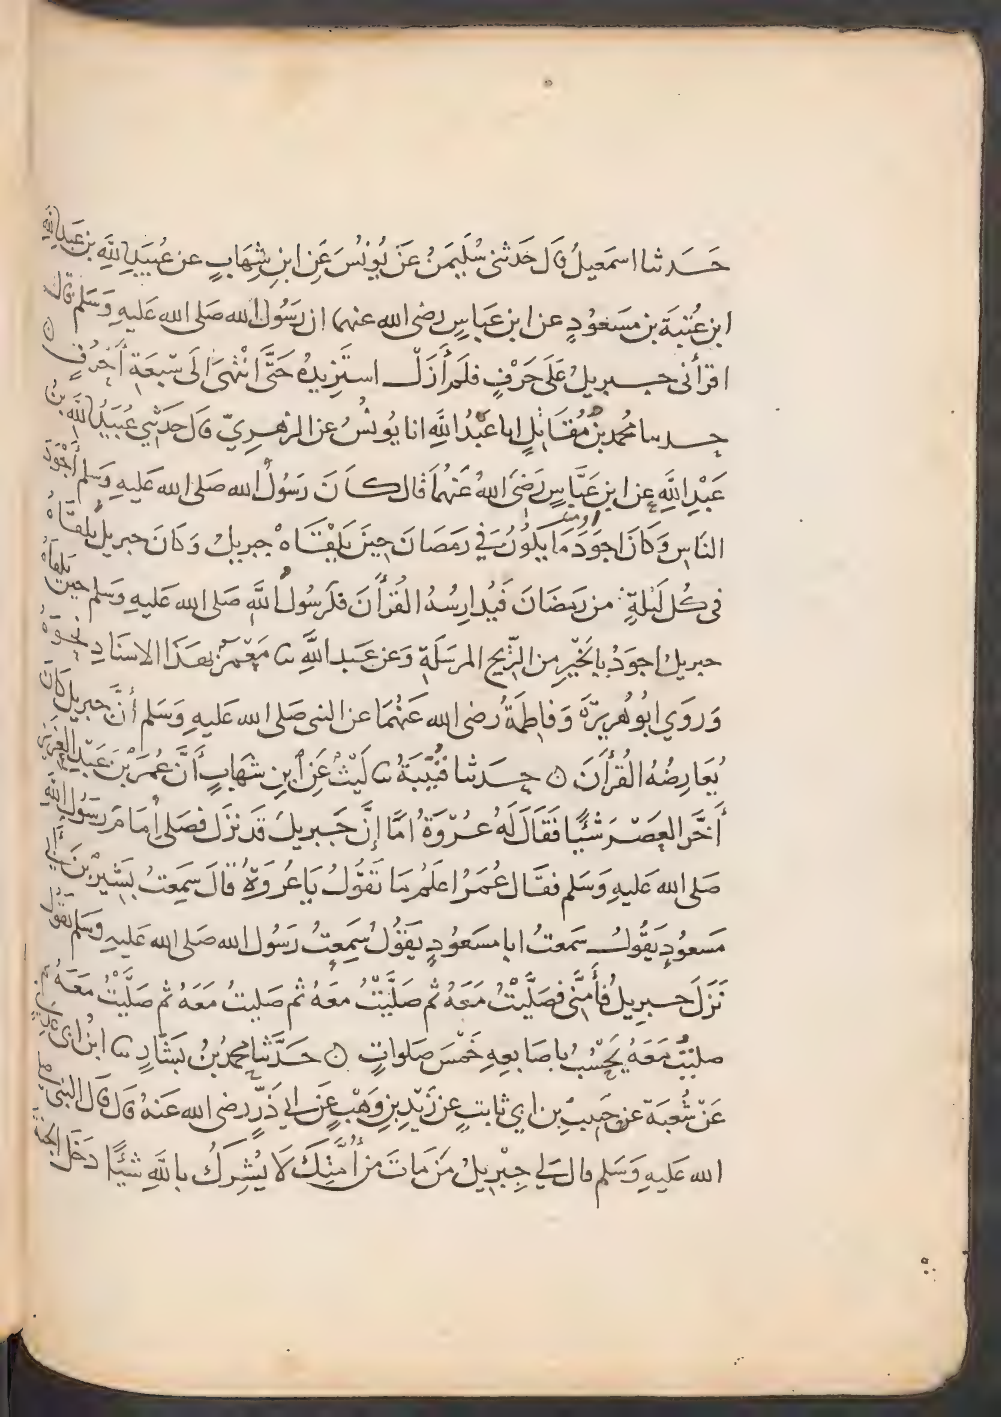 حَدثنا اسمَعيلُ قَالَ حَدثنى سُلَيمَنُ عَنْ يُونُسَ عَنِ ابنِ شِهَابٍ عن عُبَيدِ اللَّهِ بن عَبدِ اللَّهِ
ابن عُتبَةَ بن مسَعُودٍ عن ابن عَباسٍ رضى الله عنهما ان رَسُولَ الله صَلى الله عَليهِ وَسَلم قالَ
اقرأنى جبريلُ عَلَى حَرْفٍ فلَم أَزَلْ استَزِيدُهُ حَتَّى انْتَهىَ الَى سَبعَةِ أَحرُفٍ ن
حدثنا محمد بنُ مُقَاتِلٍ انا عَبْدُ اللَّهِ انا يُونُسُ عن الزهرِيّ قَالَ حَدثَنِي عُبَيدُ اللَّهِ بنُ
عَبْدِ اللَّهِ عن ابنِ عَبَّاسٍ رَضىَ اللهُ عَنهُمَا قال كَانَ رَسُولُ الله صَلى الله عَليهِ وَسَلم أَجْوَدَ
الناسِ وَكانَ اجوَدَ مَا يكونُ فى رَمضَانَ حِينَ يَلْقَاهُ جبريلُ وَكَانَ جبريلُ يلقَاهُ
فى كُل لَيلَةٍ من رَمضَانَ فَيُدارِسُهُ القُرأَنَ فلَرسُولُ اللَّهِ صَلى الله عَليهِ وَسَلم حِينَ يَلقاهُ
جبريلُ اجوَدُ بالخَيْرِ من الرِّيحِ المرسَلَةِ وَعن عَبدِ اللَّهِ ثنا مَعْمَرٌ بهَذا الاسنَادِ نحوَهُ
وَرَوَي ابُو هُرَيرَةَ وَفاطِمَةُ رضى الله عَنهُمَا عن النبى صَلى الله عَليهِ وَسَلم أَنَّ جبريلَ كَانَ
يُعَارِضُهُ القُرأَنَ ن حدثنا قُتَيْبَةُ ثنا لَيْثٌ عَنِ ابنِ شهَابٍ أَنَّ عُمَرَ بْنَ عَبْدِ العَزيزِ
أَخَّرَ العَصْرَ شَيْئًا فَقَالَ لَهُ عُرْوَةُ امَا إنَّ جَبريلَ قَد نَزَلَ فصَلى امَامَ رَسُولِ اللَّهِ
صَلى الله عَليهِ وَسَلم فقال عُمَرُ اعلَم مَا تَقُولُ يَا عُروَةُ قالَ سَمِعتُ بَشيْرَ بنَ أَبِي
مَسعودٍ يَقُولُ سَمعتُ ابا مسَعُودٍ يَقُولُ سَمِعتُ رَسُولَ الله صَلى الله عَليهِ وَسَلم يَقُولُ
نَزَلَ جبريلُ فأَمَّنِى فصَلَّيْتُ مَعَهُ ثم صَلَّيْتُ معَهُ ثم صَليتُ مَعَهُ ثم صَلَّيْتُ مَعَهُ ثم
صَليتُ مَعَهُ يَحْسُبُ باصَابعِهِ خَمْسَ صَلواتٍ ن حَدَّثنا محمدُ بنُ بَشَّارٍ ثنا ابنُ ابى عَدِيٍّ
عَنْ شُعبَةَ عن حَبيبِ بن ابي ثابتٍ عن زَيْدِ بنِ وَهْبٍ عَن ابي ذَرٍّ رضى الله عَنهُ قَالَ قَالَ النبى صلى
الله عَليهِ وَسَلم قال لي جِبْرِيلُ مَن مَاتَ من أُمَّتِكَ لَا يُشرِكُ بِاللَّهِ شيئًا دَخَلَ الجَنَّةَ